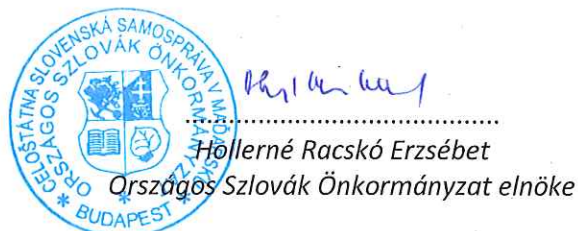 CELOŠTÁTNA SLOVENSKÁ SAMOSPRÁVA V MAĎARSKU
ORSZÁGOS SZLOVÁK ÖNKORMÁNYZAT
* BUDAPEST *
Hollerné Racskó Erzsébet
Országos Szlovák Önkormányzat elnöke